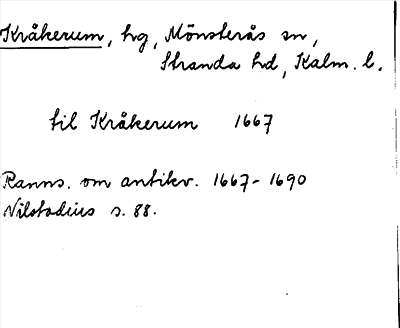 Kråkerum, hg, Mönsterås sn,
Stranda hd, Kalm. l.
til Kråkerum 1667
Ranns. om antikv. 1667-1690
Nilstadius s. 88.